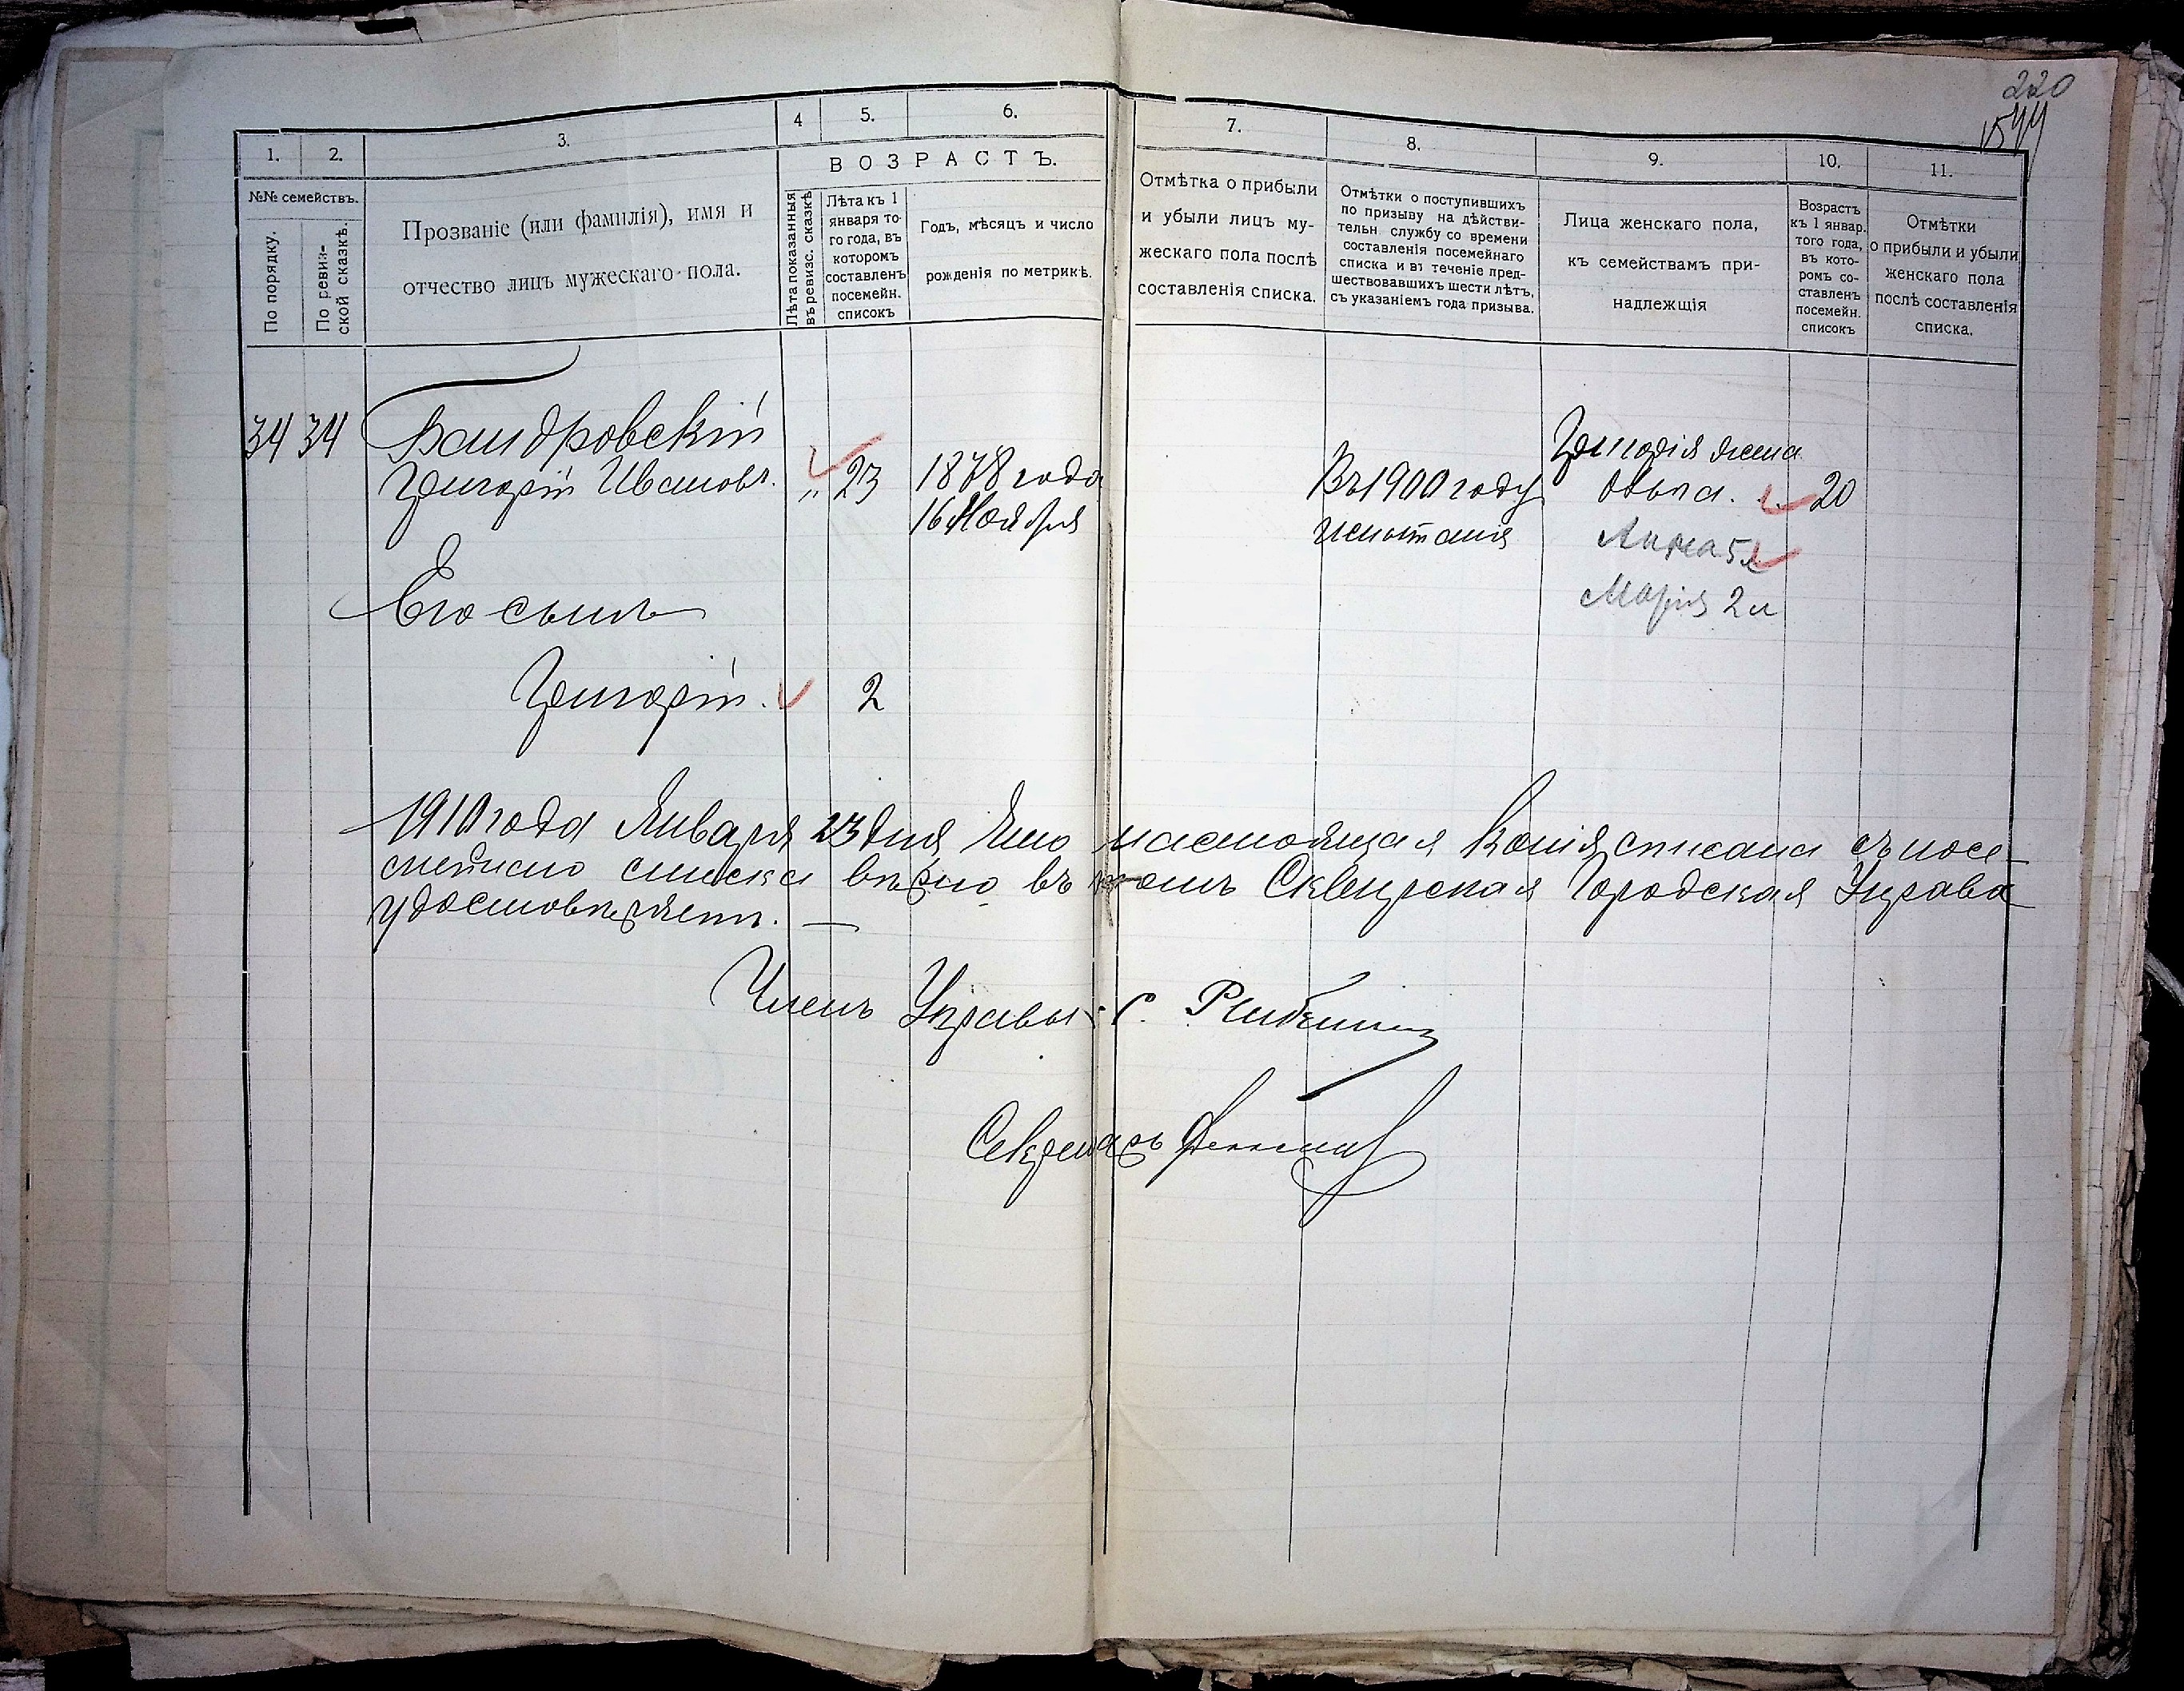 220
1544
1.
2.
3.
4
5.
6.
7.
8.
9.
10.
11.
№№ семействъ.
По порядку.
По ревиз-
ской сказкѣ.
Прозваніе (или фамилія), имя и
отчество лицъ мужескаго пола.
ВОЗРАСТЪ.
Лѣта показанныя
въ ревизс. сказкѣ
Лѣта къ 1
января то-
го года, въ
которомъ
составленъ
посемейн.
списокъ
Годъ, мѣсяцъ и число
рожденія по метрикѣ.
Отмѣтка о прибыли
и убыли лицъ му-
жескаго пола послѣ
составленія списка.
Отмѣтки о поступившихъ
по призыву на дѣйстви-
тельн службу со времени
составленія посемейнаго
списка и въ теченіе пред-
шествовавшихъ шести лѣтъ,
съ указаніемъ года призыва.
Лица женскаго пола,
къ семействамъ при-
надлежщія
Возрастъ
къ 1 январ.
того года,
въ кото-
ромъ со-
ставленъ
посемейн.
списокъ
Отмѣтки
о прибыли и убыли
женскаго пола
послѣ составленія
списка.
34 34 Бандровскій
Григорій Ивановъ. " 23 1878 года
16 Ноября
Въ 1900 году
испытанія
Григорія жена
Ольга. 20
Анна 5 л
Марія 2 л
Его сынъ
Григорій. 2
1910 года Января 23 дня Что настоящая копія списана съ посе-
мейнаго списка вѣрно въ томъ Сквирская Городская Управа
удостовѣряетъ. —
Членъ Управы: С.
Секретарь